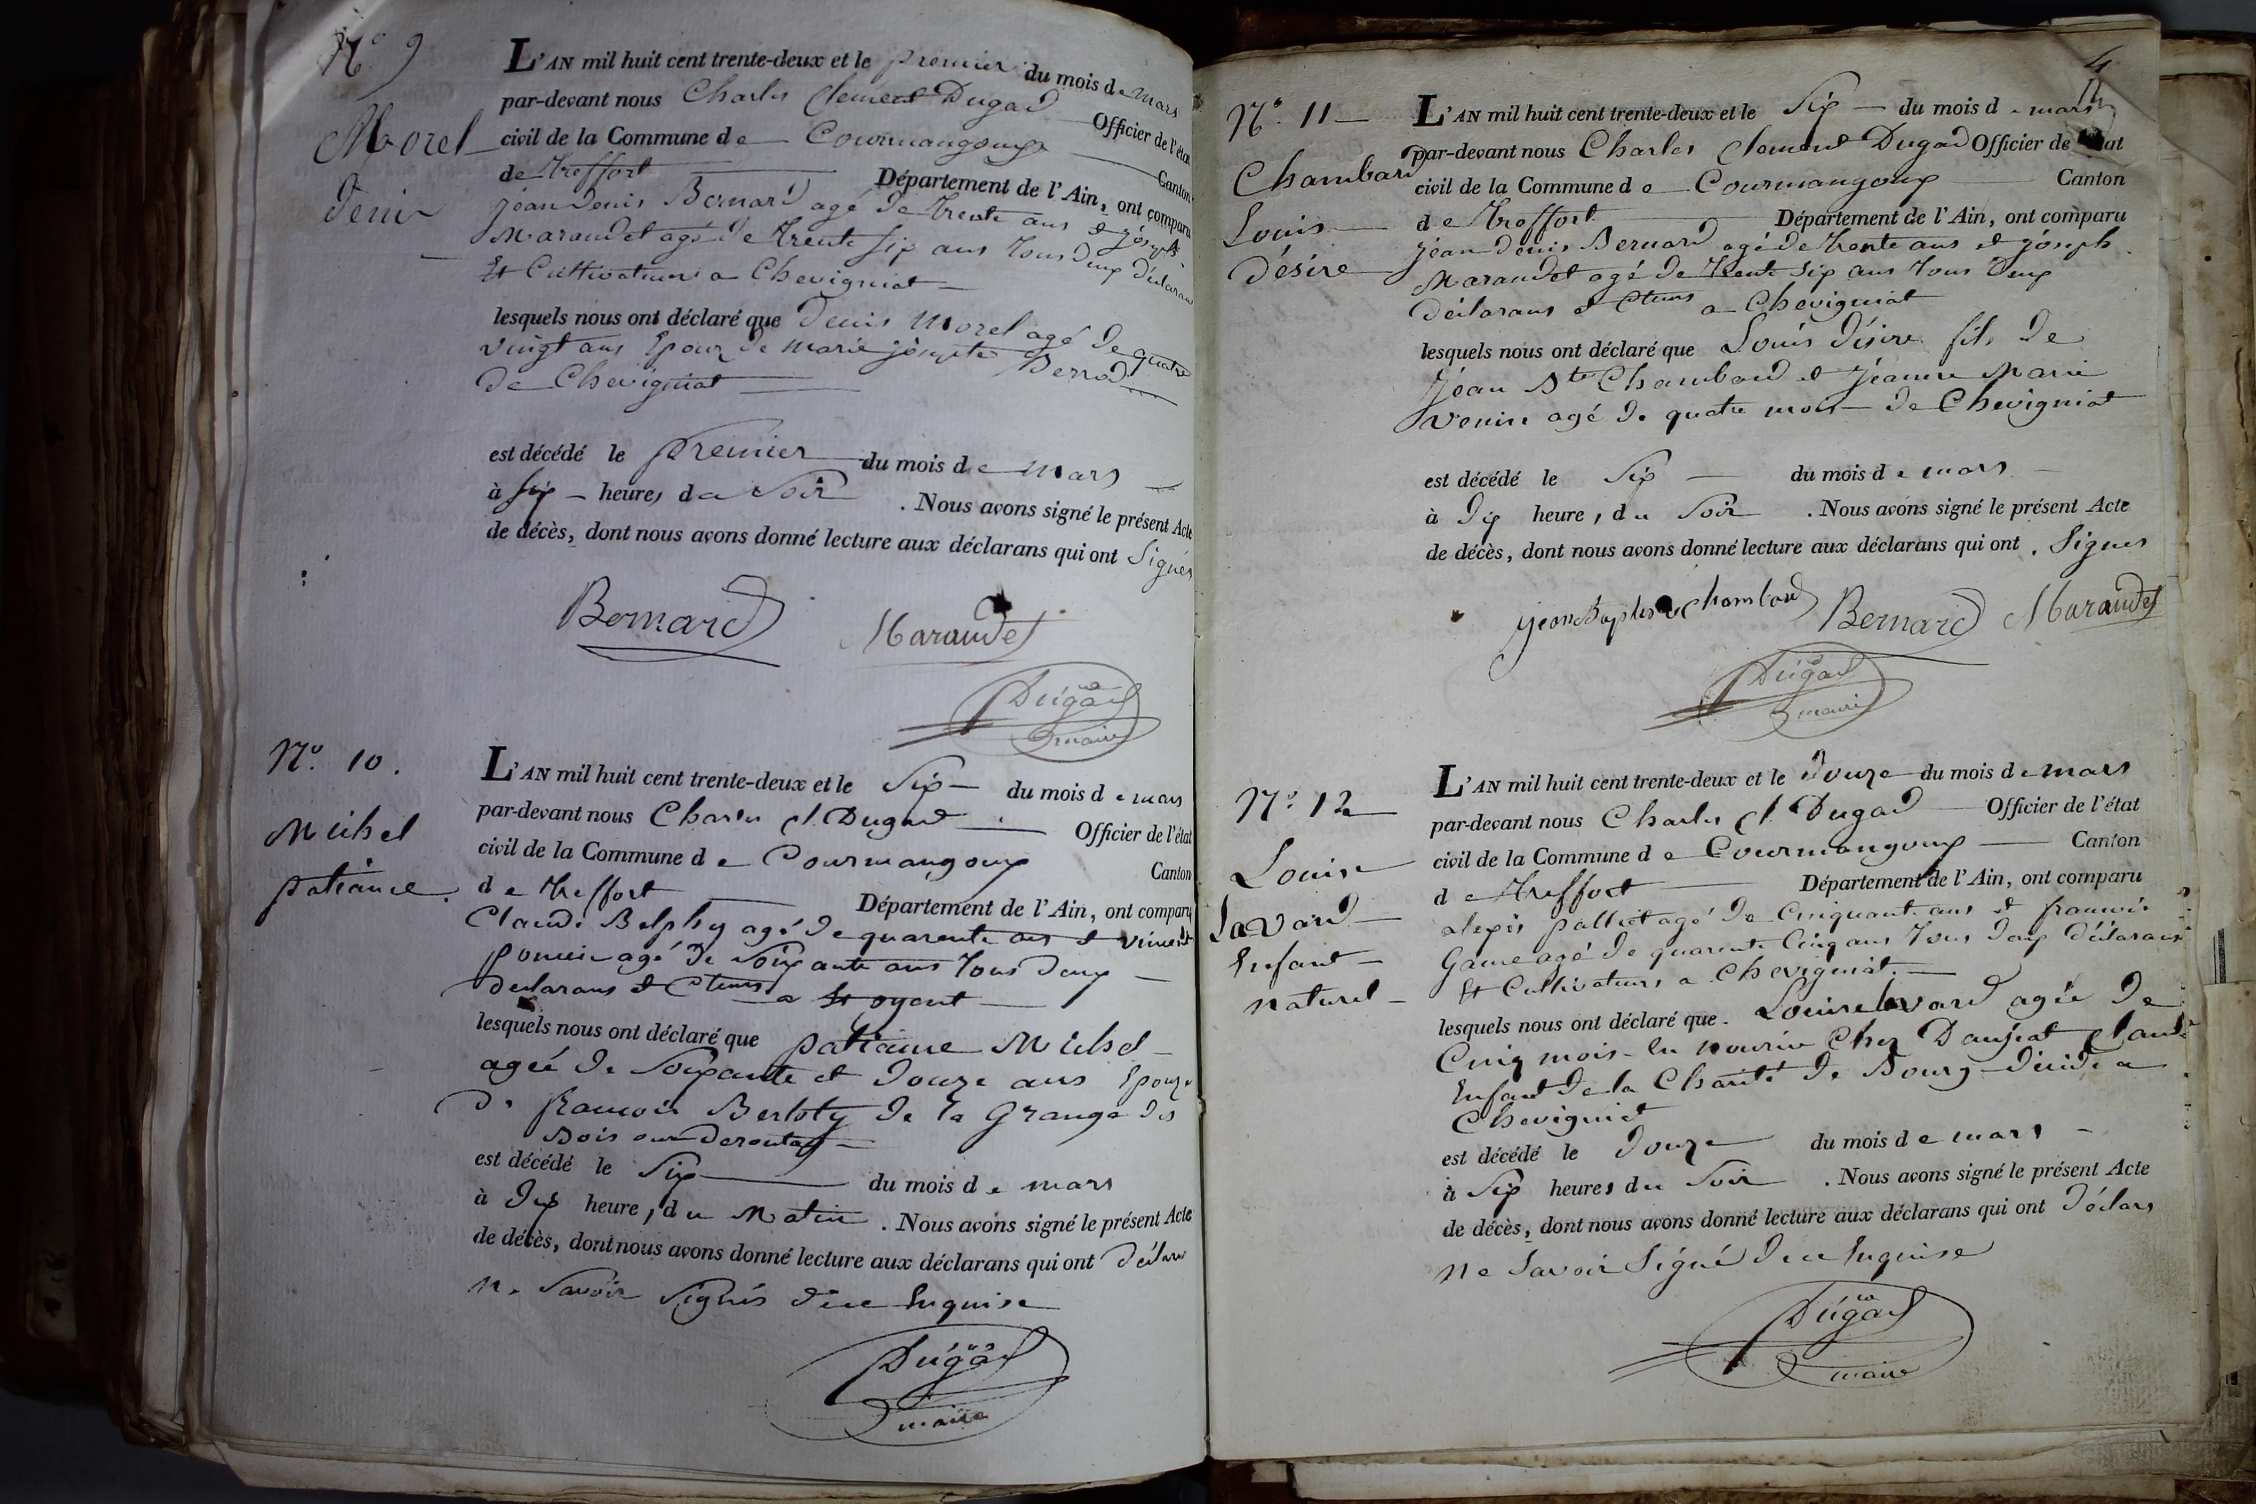 N.o 9
Morel
denis
L'AN mil huit cent trente-deux et le premier du mois de mars
par-devant nous Charles Clement Dugad Officier de l'état
civil de la Commune de Courmangoux Canton
de treffort Département de l'Ain, ont comparu
jean denis Bernard agé de trente ans et joseph
Maraudet agé de trente six ans tous deux déclarans
Et Cultivateurs a Chevigniat
lesquels nous ont déclaré que denis Morel agé de quatre
vingt ans Epoux de marie josephte
de Chevigniat
est décédé le premier du mois de mars
à six heures du soir . Nous avons signé le présent Acte
de décès, dont nous avons donné lecture aux déclarans qui ont signés
Bernard Maraudet
Dugad
maire
N.o 10.
Michel
patiance.
L'AN mil huit cent trente-deux et le Six du mois de mars
par-devant nous Charles Cl. Dugad Officier de l'état
civil de la Commune de Courmangoux Canton
de treffort Département de l'Ain, ont comparu
Claude agé de quarente ans et vincent
agé de Soixante ans tous deux
declarans et Cteurs a St oyent
lesquels nous ont déclaré que patiance Michel
ageé de Soixante et douze ans Epouze
de francois de la Grange des
Bois
est décédé le Six du mois de mars
à dix heures du Matin . Nous avons signé le présent Acte
de décès, dont nous avons donné lecture aux déclarans qui ont déclaré
ne Savoir Signés de ce Enquise
Dugad
maire
4
N.o 11
Chambard
Louis
désire
L'AN mil huit cent trente-deux et le Six du mois de mars
par-devant nous Charles Clement Dugad Officier de l'état
civil de la Commune de Courmangoux Canton
de treffort Département de l'Ain, ont comparu
jean denis Bernard agé de trente ans et joseph
Maraudet agé de trente six ans tous deux
déclarans et Cteurs a Chevigniat
lesquels nous ont déclaré que Louis désire fils de
jean Bte Chambard et jeanne Marie
agé de quatre mois de Chevigniat
est décédé le Six du mois de mars
à dix heures du Soir . Nous avons signé le présent Acte
de décès, dont nous avons donné lecture aux déclarans qui ont . Signes
jean Baptiste Chambard Bernard Maraudet
Dugad
maire
N.o 12
Louise
Lavard
Enfant
naturel
L'AN mil huit cent trente-deux et le douze du mois de mars
par-devant nous Charles Cl. Dugad Officier de l'état
civil de la Commune de Courmangoux Canton
de treffort Département de l'Ain, ont comparu
alexis agé de Cinquante ans et francois
agé de quarente Cinq ans tous deux déclarans
Et Cultivateurs a Chevigniat.
lesquels nous ont déclaré que Louise lavard agée de
Cinq mois En nourice Chez Daujat Claude
Enfant de la Charité de Bourg décidé a
Chevigniat
est décédé le douze du mois de mars
à Six heures du Soir . Nous avons signé le présent Acte
de décès, dont nous avons donné lecture aux déclarans qui ont déclars
ne Savoir Signé de ce Enquise
Dugad
maire